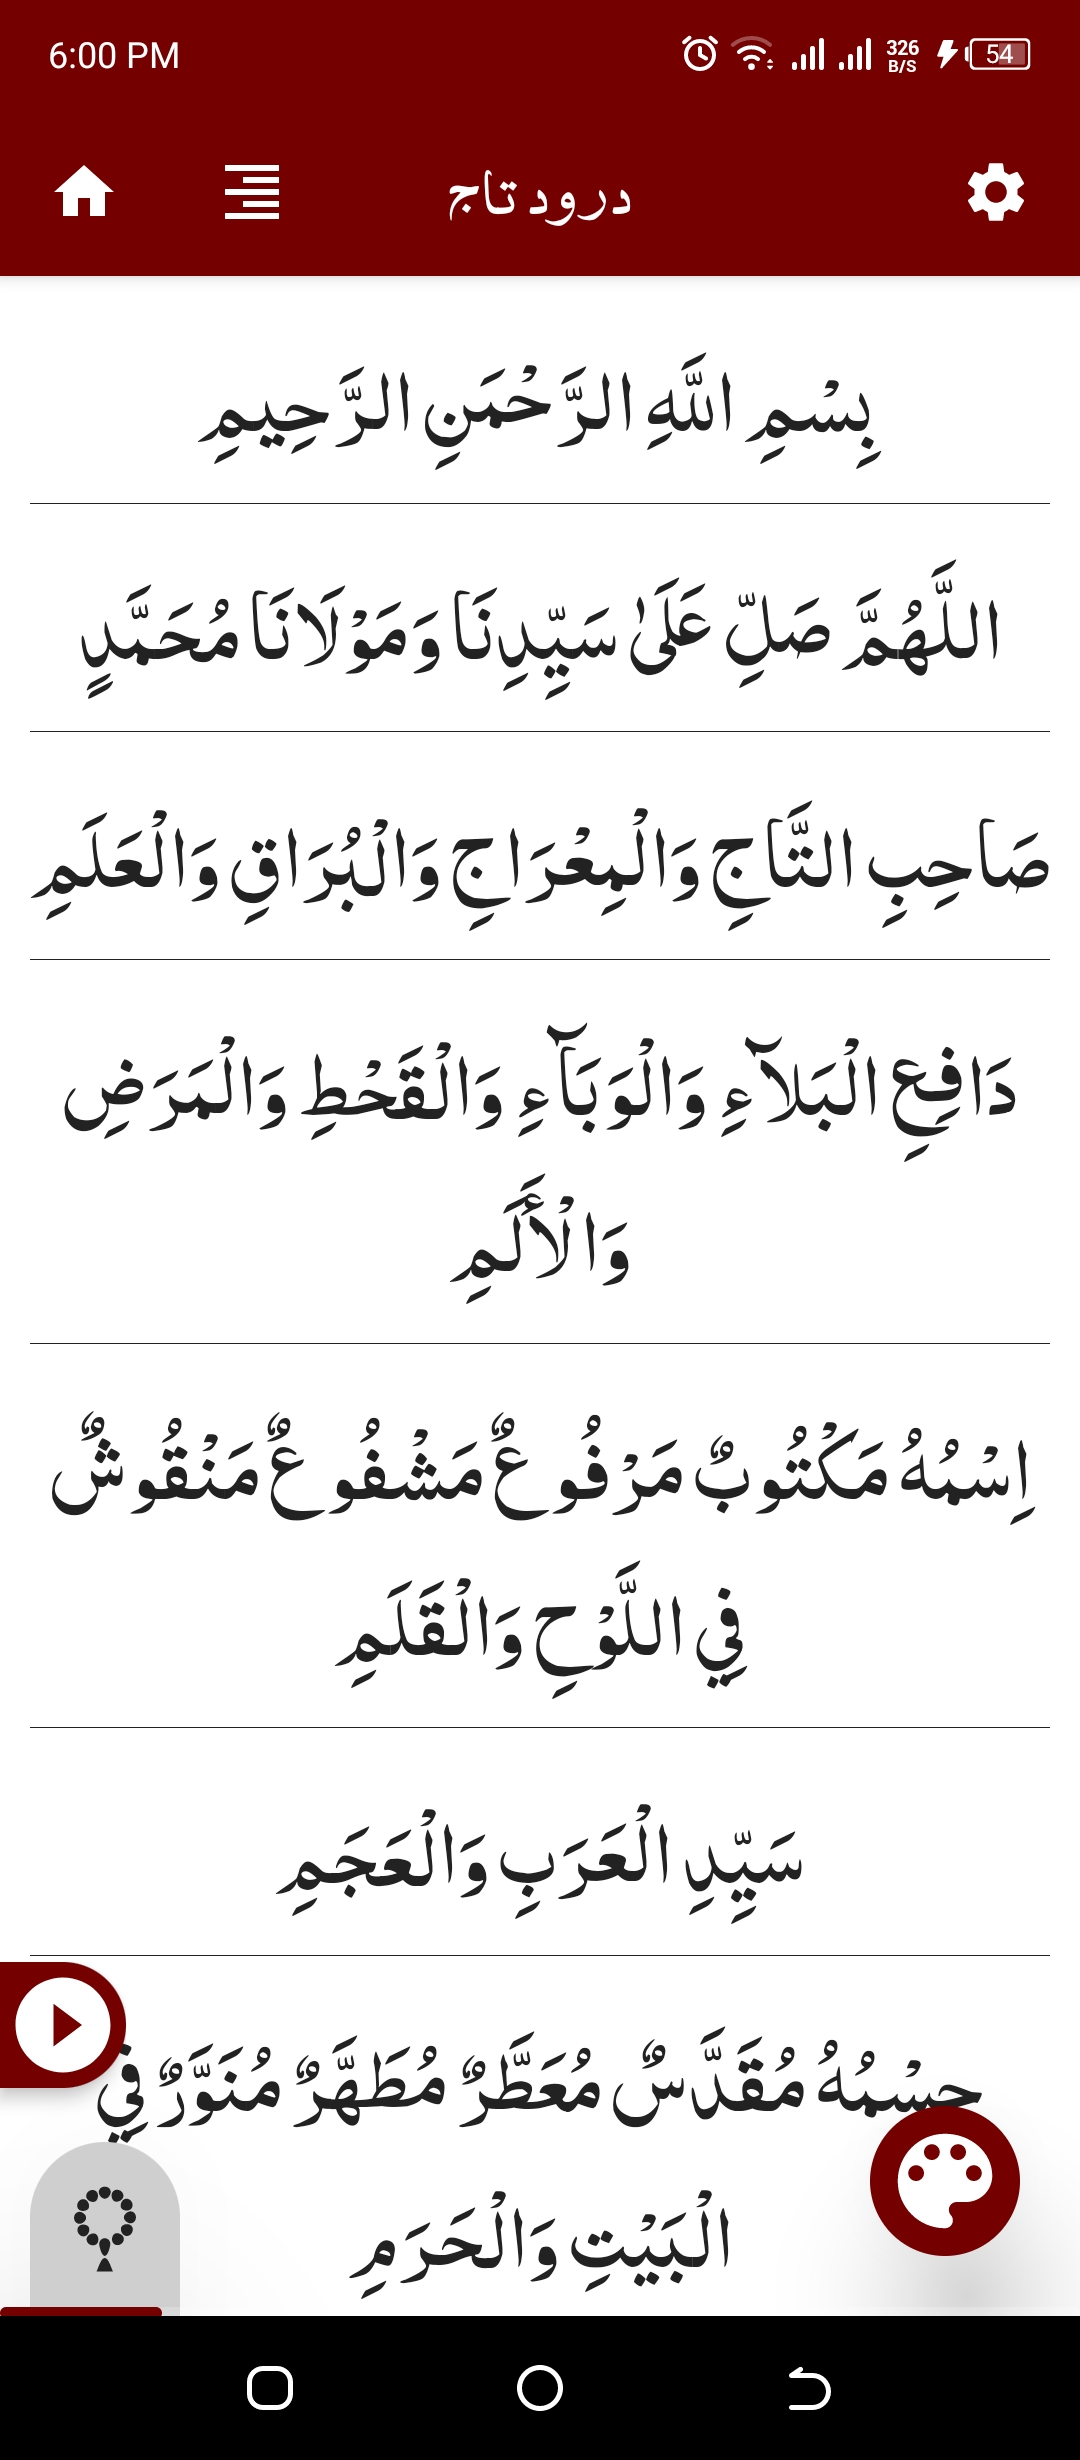 6:00 PM
326
B/S
54
درود تاج
بِسْمِ اللَّهِ الرَّحْمَنِ الرَّحِيمِ
اللَّهُمَّ صَلِّ عَلَىٰ سَيِّدِنَا وَمَوْلَانَا مُحَمَّدٍ
صَاحِبِ التَّاجِ وَالْمِعْرَاجِ وَالْبُرَاقِ وَالْعَلَمِ
دَافِعِ الْبَلَآءِ وَالْوَبَآءِ وَالْقَحْطِ وَالْمَرَضِ
وَالْأَلَمِ
اِسْمُهُ مَكْتُوبٌ مَرْفُوعٌ مَشْفُوعٌ مَنْقُوشٌ
فِي اللَّوْحِ وَالْقَلَمِ
سَيِّدِ الْعَرَبِ وَالْعَجَمِ
جِسْمُهُ مُقَدَّسٌ مُعَطَّرٌ مُطَهَّرٌ مُنَوَّرٌ فِي
الْبَيْتِ وَالْحَرَمِ